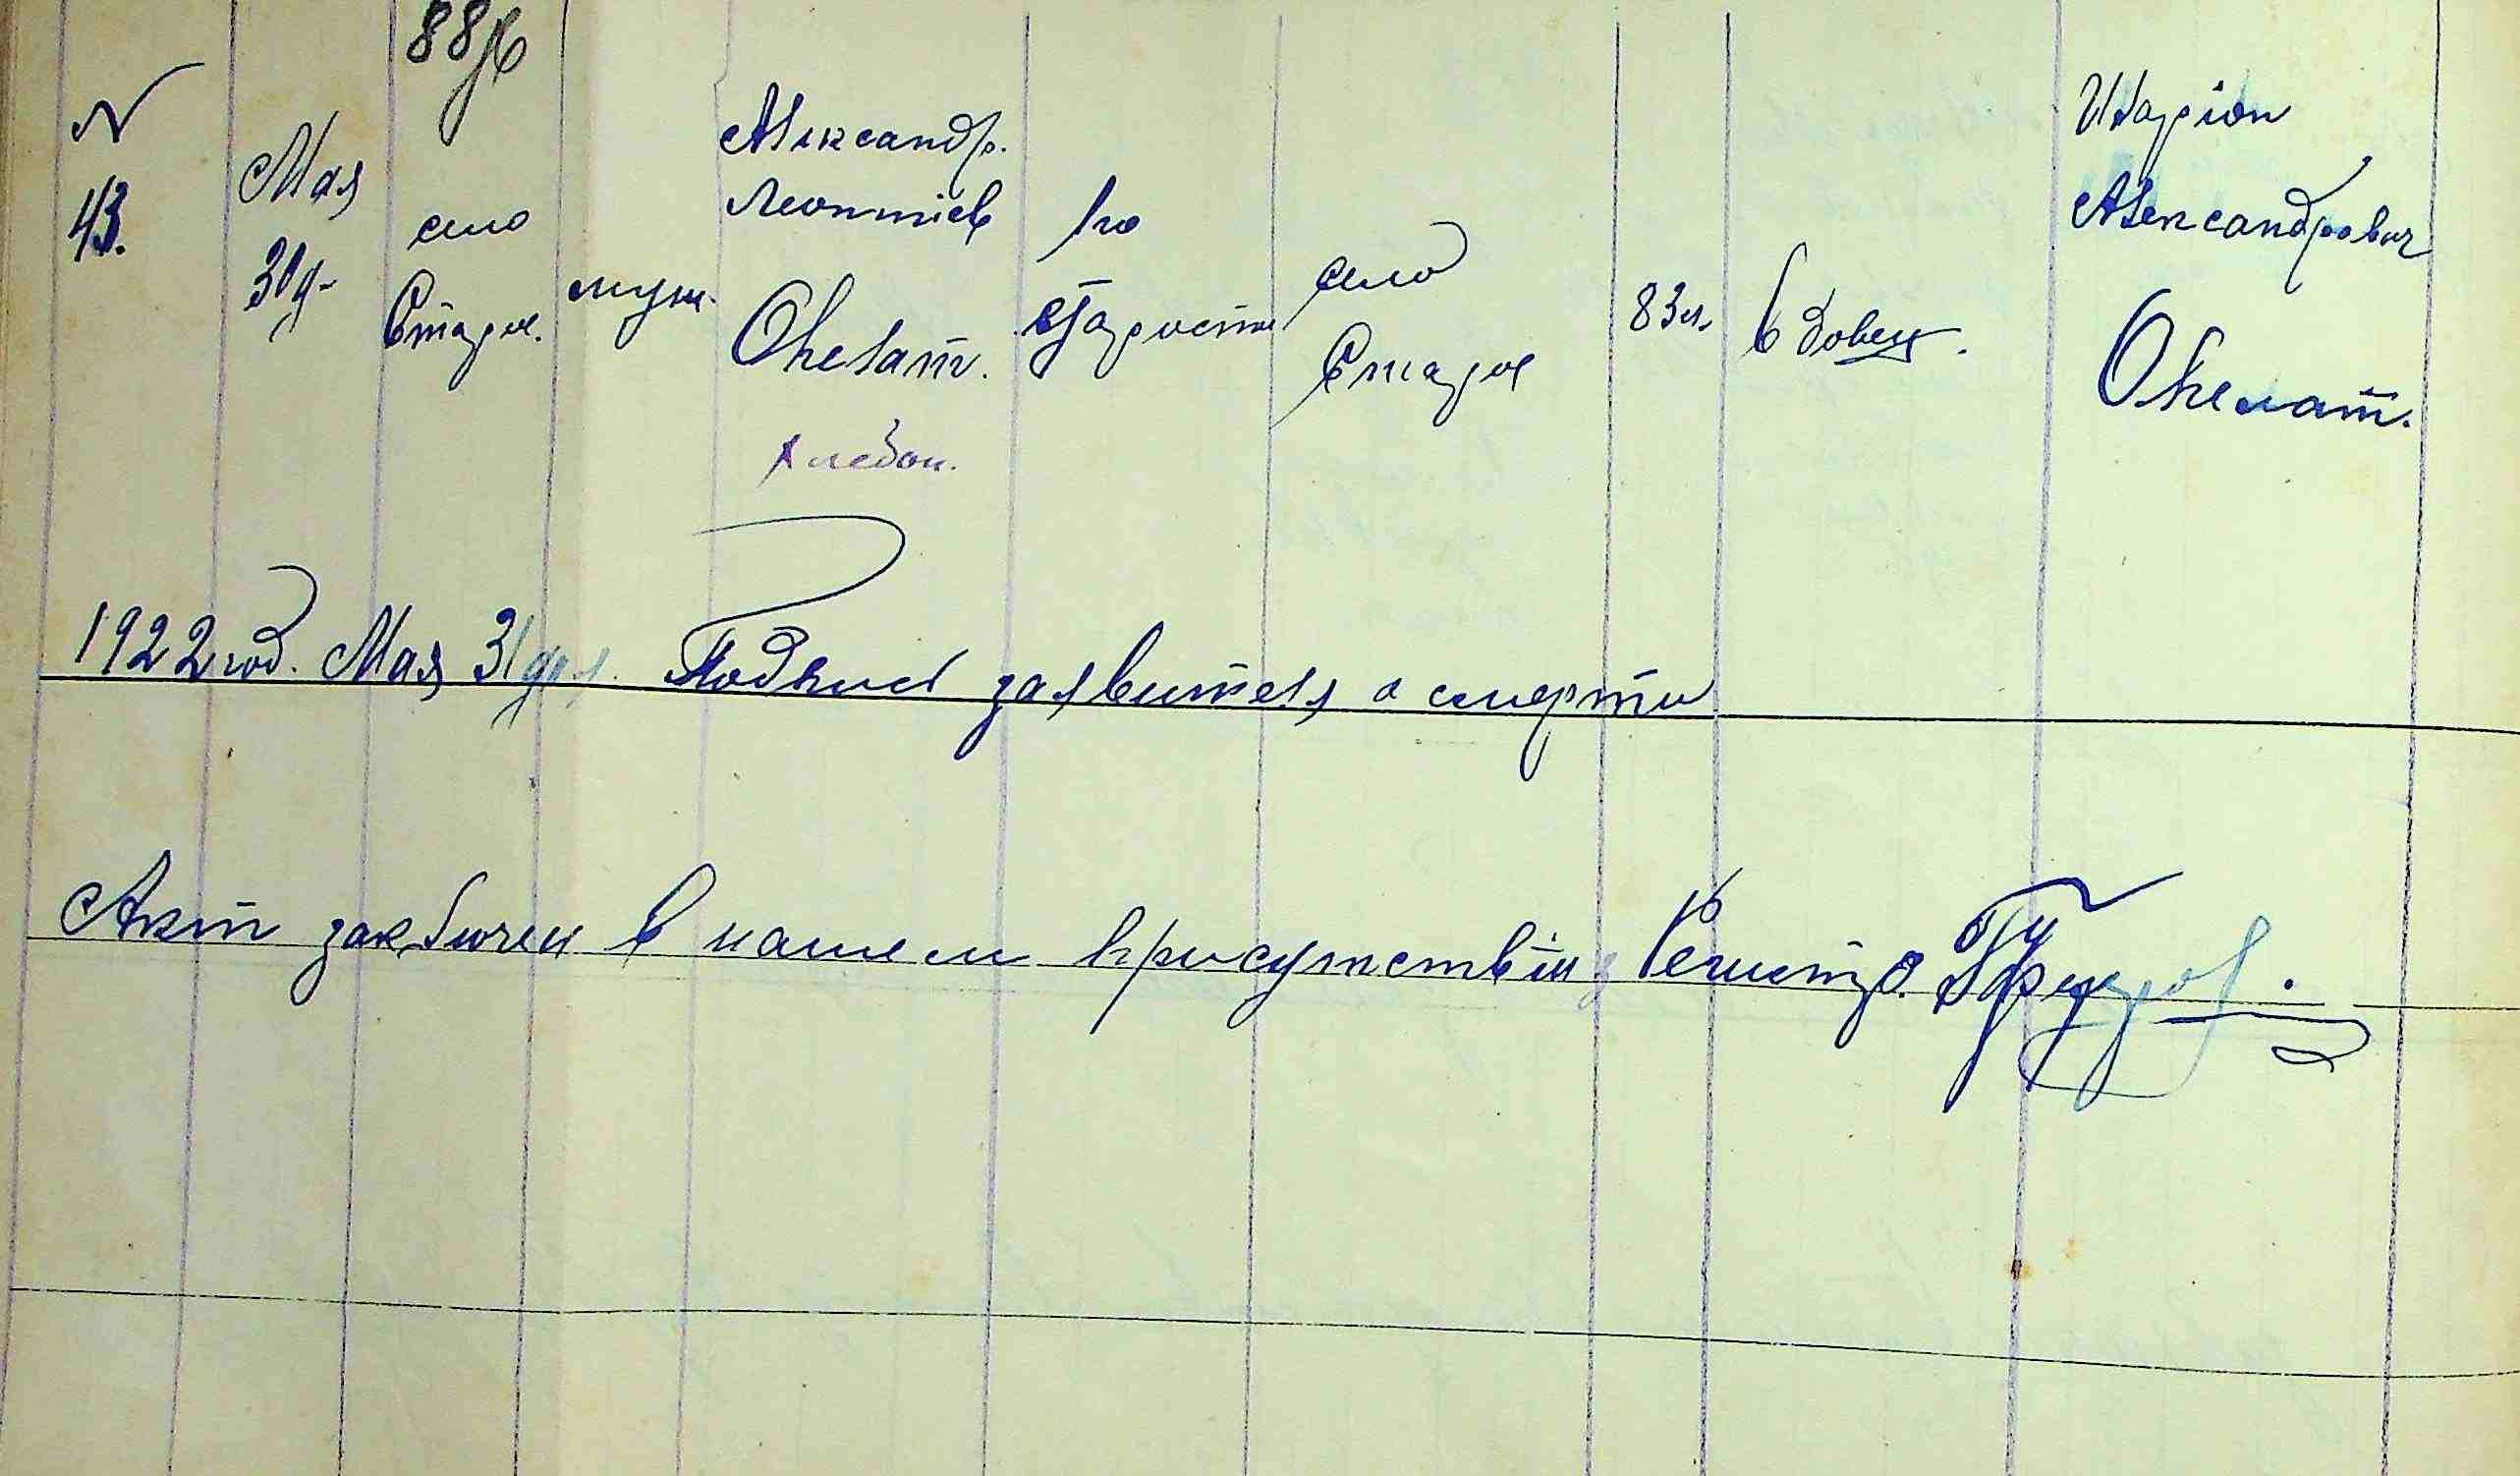 88
N
43.
Мая
31д-
село
Старое.
муж.
Александр.
Леонтіев
Опелат.
хлебоп.
По
старости
село
Старое
83 л.
вдовец.
Иларіон
Александрович
Опелат.
1922 год. Мая 31 дня. Подпись заявителя о смерти
Акт заключен в нашем присутствіи Регистр.